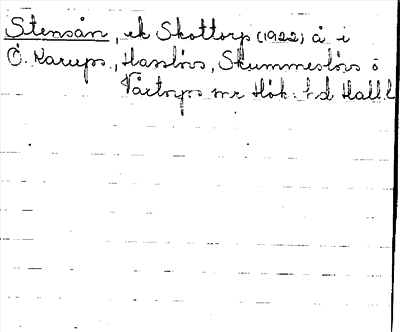 Stensån, ek Skottorp (1922) å i
Ö. Karups, Hasslövs, Skummeslövs ö
Våxtorps snr Hök. hd Hall. l